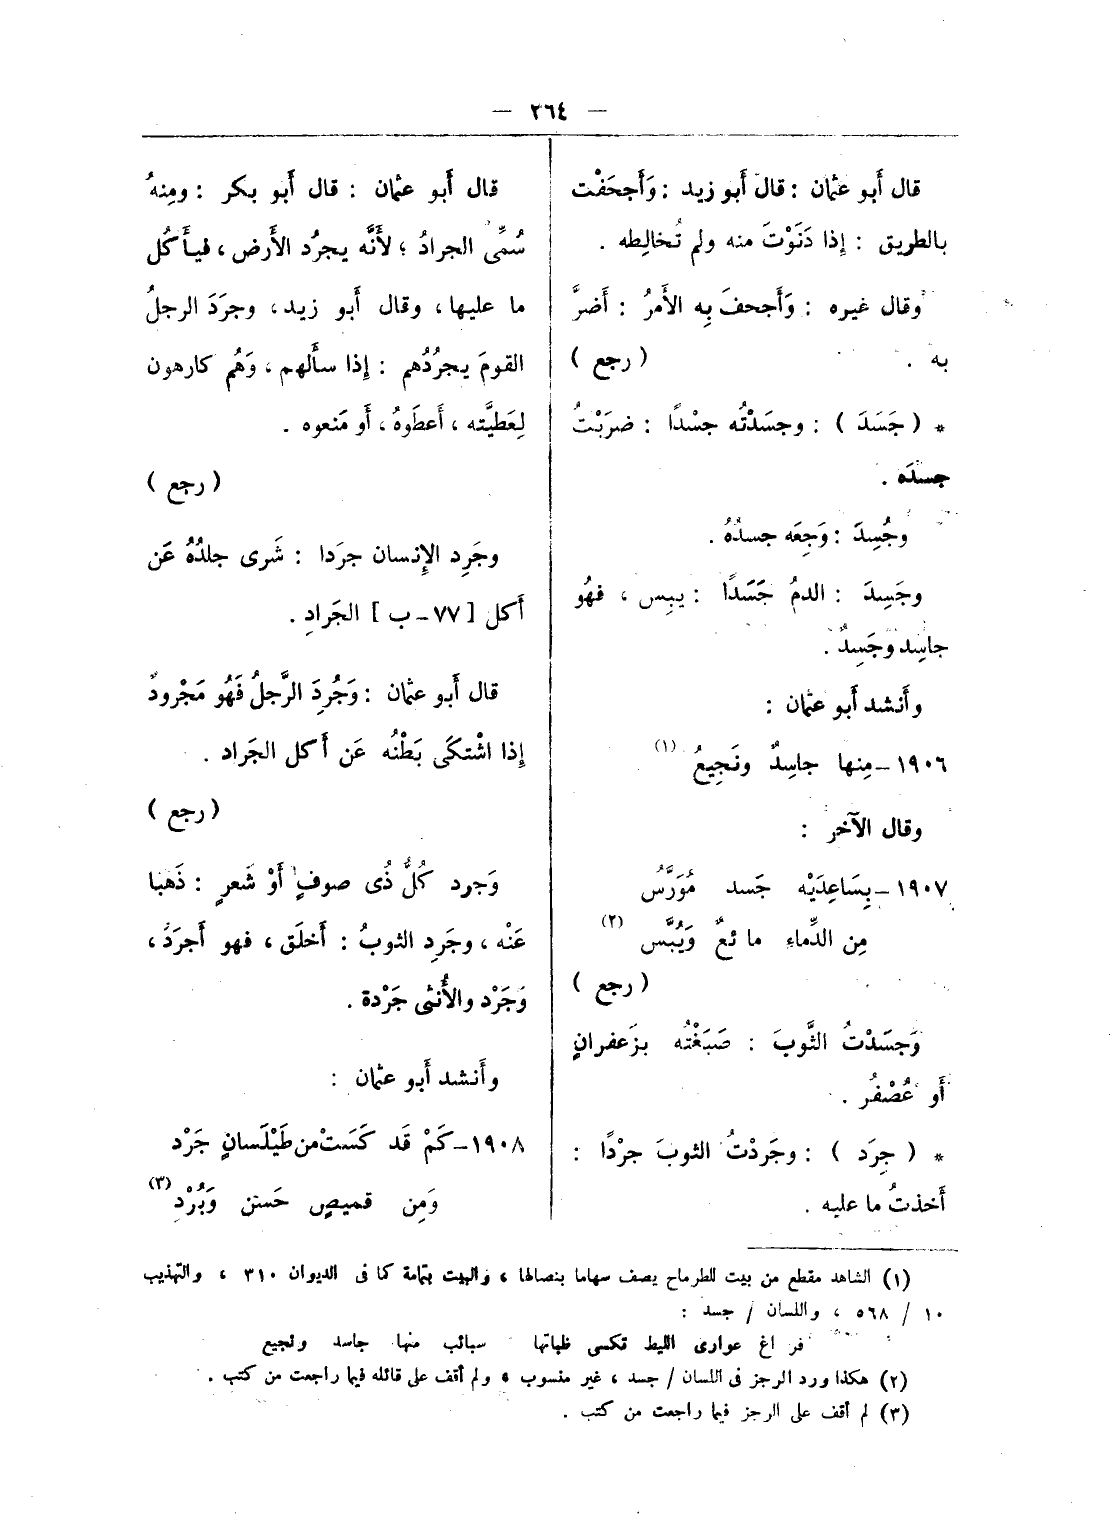 — ٢٦٤ —
قال أَبو عثمان : قال أَبو زيد : وَأَجحَفْت
بالطريق : إِذا دَنَوْتَ منه ولم تُخالِطه .
وقال غيره : وَأَجحفَ بِه الأَمرُ : أَضرَّ
به . ( رجع )
* ( جَسَدَ ) : وجسَدْتُه جسْدًا : ضرَبْتُ
جسدَه .
وجُسِدَ : وَجِعَه جسدُهُ .
وجَسِدَ : الدمُ جَسَدًا : يبِس ، فهُو
جاسِد وَجَسِدٌ .
وأَنشد أَبو عثمان :
١٩٠٦ – مِنها جاسِدٌ ونَجِيعُ (١)
وقال الآخر :
١٩٠٧ – بِسَاعِدَيْه جَسد مُوَرَّسُ
مِن الدِّماءِ مائعٌ وَيُبَّس (٢)
( رجع )
وَجسَدْتُ الثَّوبَ : صَبَغْتُه بزَعفرانٍ
أَو عُصْفُر .
* ( جرَد ) : وجَردْتُ الثوبَ جرْدًا :
أَخذتُ ما عليه .
قال أَبو عثمان : قال أَبو بكر : ومِنهُ
سُمِّىَ الجرادُ ؛ لأَنَّه يجرُد الأَرض ، فيأَكُل
ما عليها ، وقال أَبو زيد ، وجرَدَ الرجلُ
القومَ يجرُدُهم : إِذا سأَلهم ، وَهُم كارهون
لِعَطيَّته ، أَعطَوهُ ، أَو مَنعوه .
( رجع )
وجَرِد الإِنسان جرَدا : شَرى جلدُهُ عَن
أَكل [ ٧٧ – ب ] الجَرادِ .
قال أَبو عثمان : وَجُرِدَ الرَّجلُ فَهُو مَجْرودٌ
إِذا اشْتكَى بَطْنُه عَن أَكل الجَراد .
( رجع )
وَجرد كُلُّ ذُى صوفٍ أَوْ شَعرٍ : ذَهَبا
عَنْه ، وجَرِد الثوبُ : أَخلَق ، فهو أَجرَدُ ،
وَجَرْد والأُنثى جَرْدة .
وأَنشد أَبو عثمان :
١٩٠٨ – كَمْ قَد كَسَتْ من طَيْلَسانٍ جَرْد
وَمِن قميصٍ حَسَن وَبُرْدِ (٣)
(١) الشاهد مقطع من بيت للطرماح يصف سهاما بنصالها ، والبيت بتمامة كما فى الديوان ٣١٠ ، والتهذيب
١٠ / ٥٦٨ ، واللسان / جسد :
فراغ عوارى الليط تكسى ظباتها سبائب منها جاسد ونجيع
(٢) هكذا ورد الرجز فى اللسان / جسد ، غير منسوب ، ولم أقف على قائله فيما راجعت من كتب .
(٣) لم أقف على الرجز فيما راجعت من كتب .